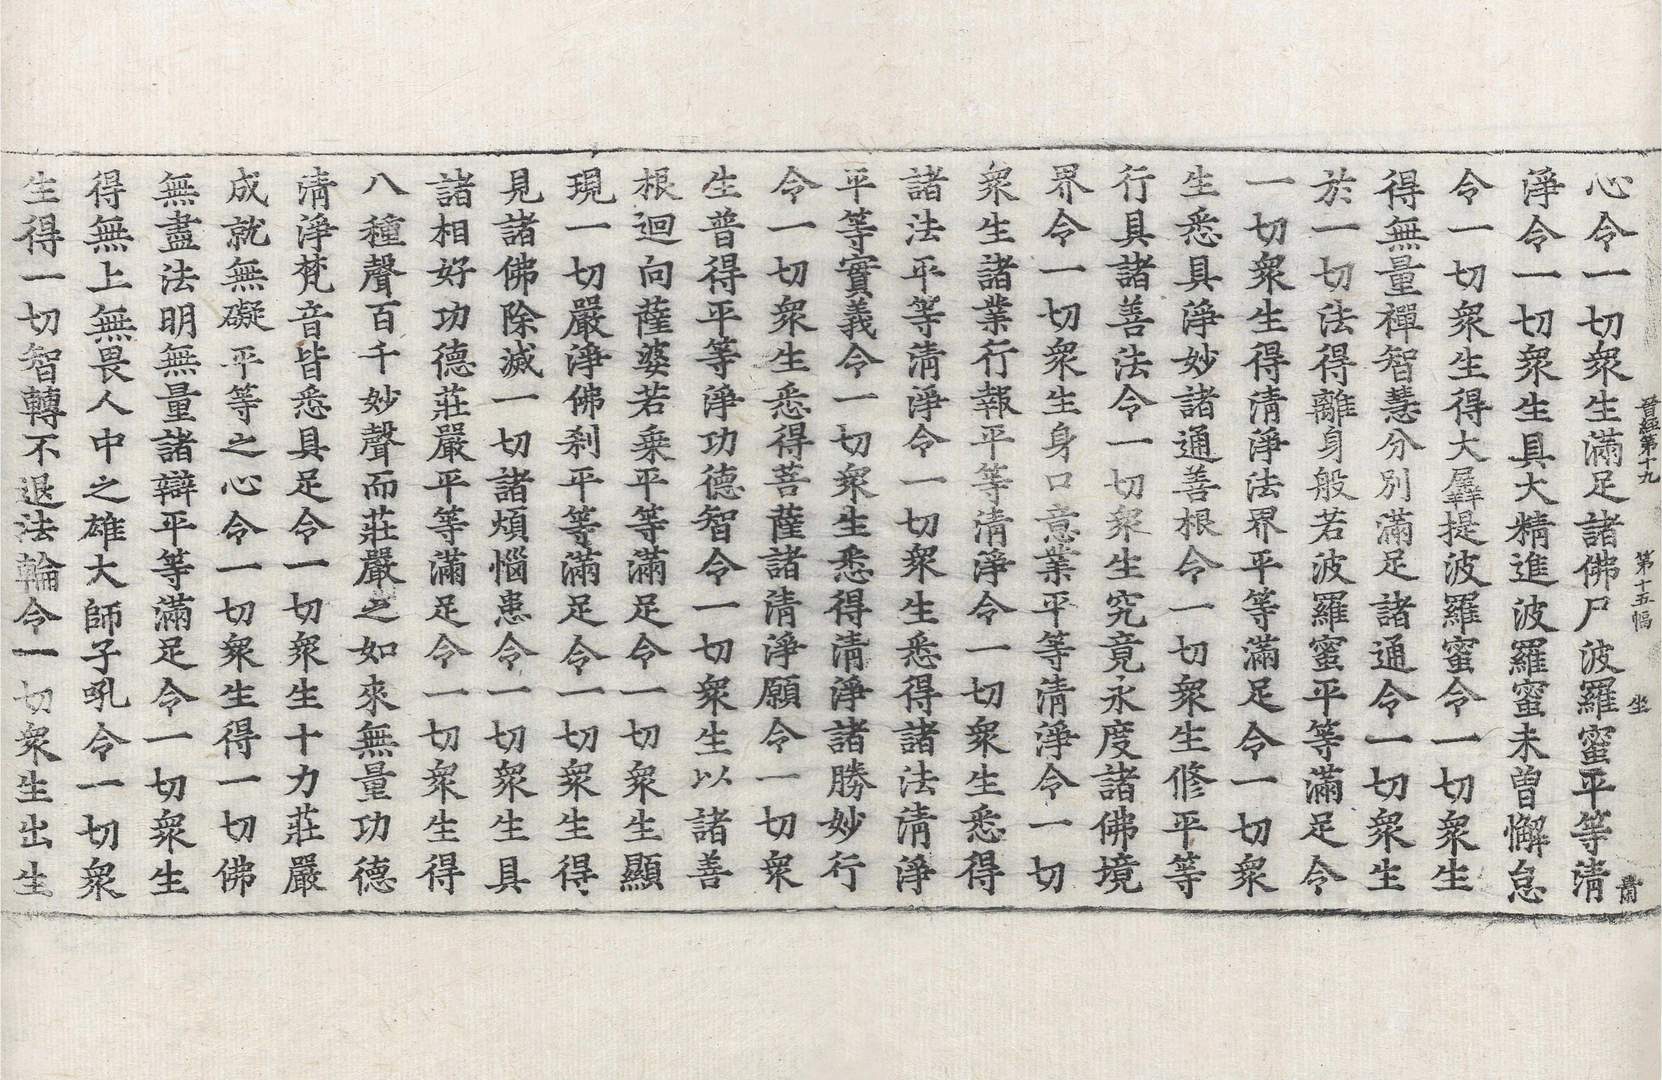 晉經第十九 第十五幅 坐
心令一切衆生滿足諸佛尸波羅蜜平等清
淨令一切衆生具大精進波羅蜜未曽懈怠
令一切衆生得大羼提波羅蜜令一切衆生
得無量禪智慧分別滿足諸通令一切衆生
於一切法得離身般若波羅蜜平等滿足令
一切衆生得清淨法界平等滿足令一切衆
生悉具淨妙諸通善根令一切衆生修平等
行具諸善法令一切衆生究竟永度諸佛境
界令一切衆生身口意業平等清淨令一切
衆生諸業行報平等清淨令一切衆生悉得
諸法平等清淨令一切衆生悉得諸法清淨
平等實義令一切衆生悉得清淨諸勝妙行
令一切衆生悉得菩薩諸清淨願令一切衆
生普得平等淨功德智令一切衆生以諸善
根迴向薩婆若乗平等滿足令一切衆生顯
現一切嚴淨佛刹平等滿足令一切衆生得
見諸佛除滅一切諸煩惱患令一切衆生具
諸相好功德莊嚴平等滿足令一切衆生得
八種聲百千妙聲而莊嚴之如來無量功德
清淨梵音皆悉具足令一切衆生十力莊嚴
成就無礙平等之心令一切衆生得一切佛
無盡法明無量諸辯平等滿足令一切衆生
得無上無畏人中之雄大師子吼令一切衆
生得一切智轉不退法輪令一切衆生出生